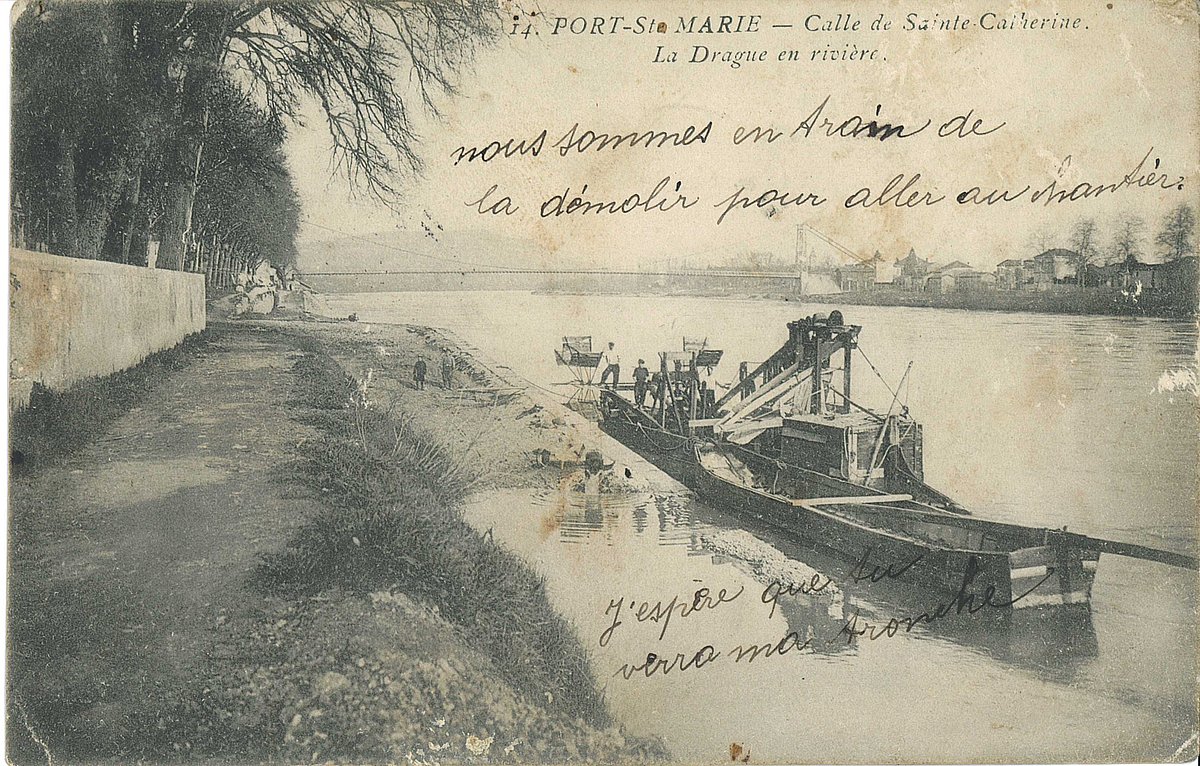 14. PORT-Ste MARIE — Calle de Sainte-Catherine.
La Drague en rivière.
nous sommes en train de
la démolir pour aller au chantièr.
J'espère que tu
verra ma tronche